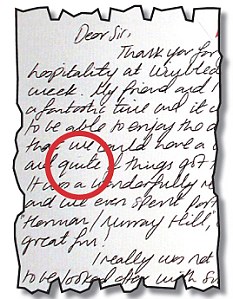 Dear Sir,
Thank you for
hospitality at
week. My friend and I
a fantastic time and it
to be able to enjoy the
that we could have a
and quite if things got
It was a wonderfully
and we even spent part
'Herman / Murray Hill',
great fun!
I really was not
to be looked after with